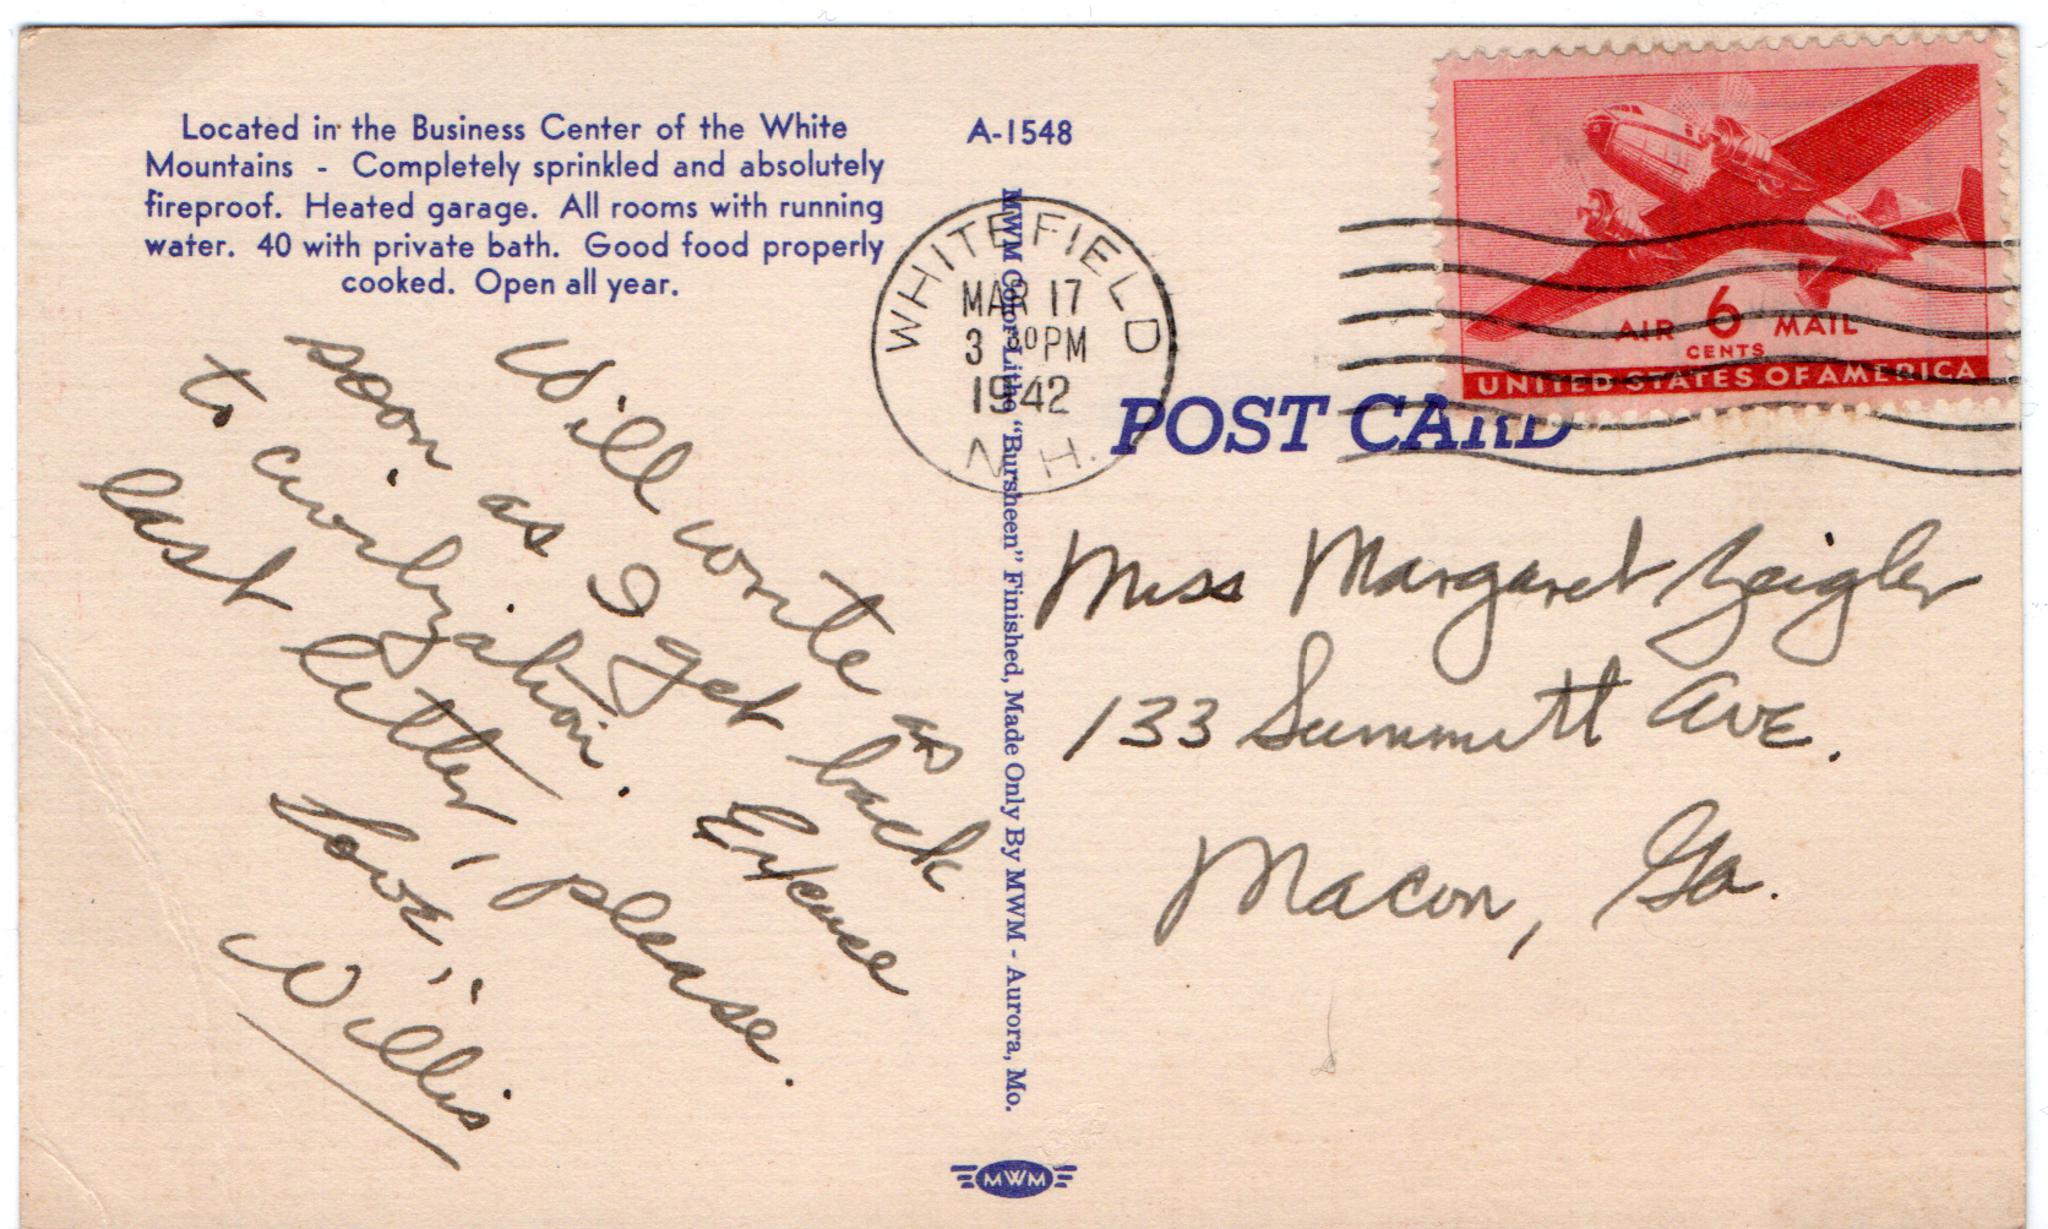 Located in the Business Center of the White
Mountains - Completely sprinkled and absolutely
fireproof. Heated garage. All rooms with running
water. 40 with private bath. Good food properly
cooked. Open all year.
A-1548
WHITEFIELD
MAR 17
3 30PM
1942
N.H.
AIR 6 MAIL
CENTS
UNITED STATES OF AMERICA
POST CARD
MWM Color-Litho "Bursheen" Finished, Made Only By MWM - Aurora, Mo.
Will write as
soon as I get back
to civilization. Excuse
last letter, please.
Love,
Willis
Miss Margaret Zeigler
133 Summitt Ave.
Macon, Ga.
MWM